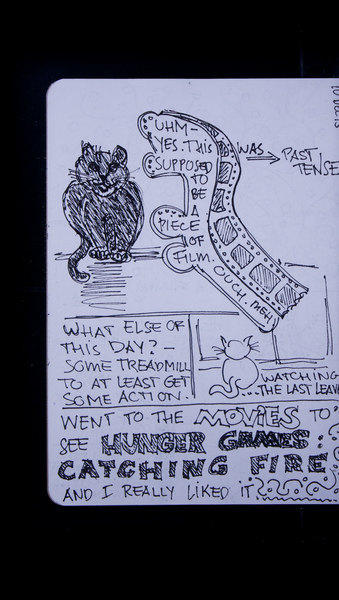 UHM-
YES. THIS
SUPPOSED
TO
BE
A
PIECE
OF
FILM.
OUCH. MEH.
WAS → PAST TENSE
WHAT ELSE OF
THIS DAY? -
SOME TREADMILL
TO AT LEAST GET
SOME ACTION.
WATCHING
...THE LAST LEAV
WENT TO THE MOVIES TO
SEE HUNGER GAMES:
CATCHING FIRE
AND I REALLY LIKED IT